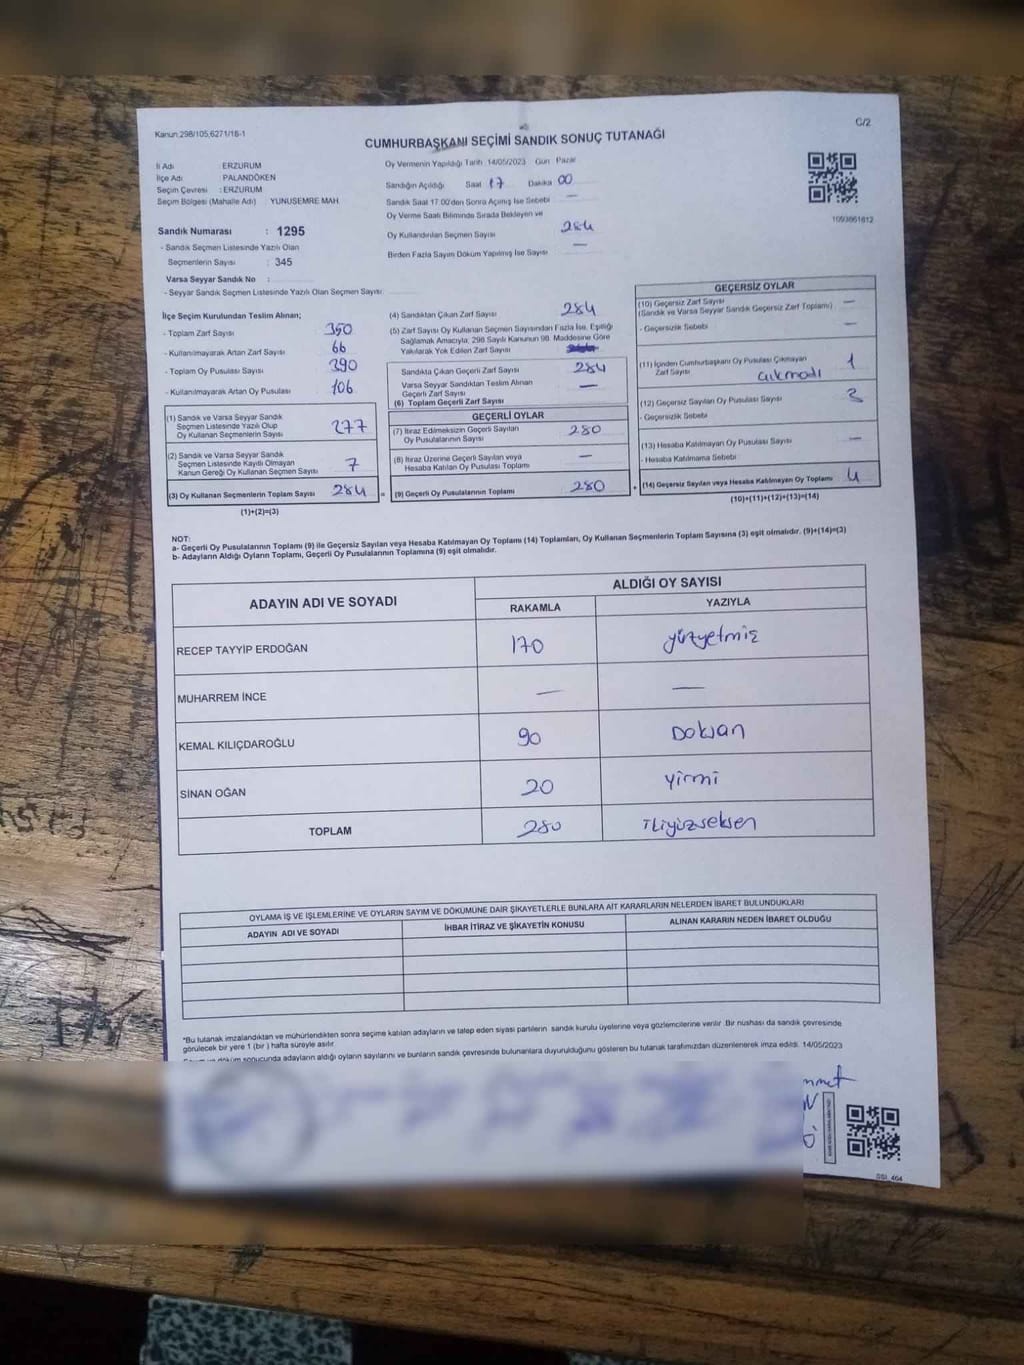 Kanun:298/105,6271/16-1
C/2
CUMHURBAŞKANI SEÇİMİ SANDIK SONUÇ TUTANAĞI
İl Adı : ERZURUM
İlçe Adı : PALANDÖKEN
Seçim Çevresi : ERZURUM
Seçim Bölgesi (Mahalle Adı) : YUNUSEMRE MAH.
Oy Vermenin Yapıldığı Tarih 14/05/2023 Gün Pazar
Sandığın Açıldığı Saat 17 Dakika 00
Sandık Saat 17.00'den Sonra Açılmış İse Sebebi —
Oy Verme Saati Bitiminde Sırada Bekleyen ve
Oy Kullandırılan Seçmen Sayısı 284
Birden Fazla Sayım Döküm Yapılmış İse Sayısı —
1093661612
Sandık Numarası : 1295
- Sandık Seçmen Listesinde Yazılı Olan
Seçmenlerin Sayısı : 345
Varsa Seyyar Sandık No :
- Seyyar Sandık Seçmen Listesinde Yazılı Olan Seçmen Sayısı:
İlçe Seçim Kurulundan Teslim Alınan;
- Toplam Zarf Sayısı 350
- Kullanılmayarak Artan Zarf Sayısı 66
- Toplam Oy Pusulası Sayısı 390
- Kullanılmayarak Artan Oy Pusulası 106
(1) Sandık ve Varsa Seyyar Sandık
Seçmen Listesinde Yazılı Olup
Oy Kullanan Seçmenlerin Sayısı 277
(2) Sandık ve Varsa Seyyar Sandık
Seçmen Listesinde Kayıtlı Olmayan
Kanun Gereği Oy Kullanan Seçmen Sayısı 7
(3) Oy Kullanan Seçmenlerin Toplam Sayısı 284
(1)+(2)=(3)
(4) Sandıktan Çıkan Zarf Sayısı 284
(5) Zarf Sayısı Oy Kullanan Seçmen Sayısından Fazla İse, Eşitliği
Sağlamak Amacıyla, 298 Sayılı Kanunun 98. Maddesine Göre
Yakılarak Yok Edilen Zarf Sayısı
Sandıkta Çıkan Geçerli Zarf Sayısı 284
Varsa Seyyar Sandıktan Teslim Alınan
Geçerli Zarf Sayısı —
(6) Toplam Geçerli Zarf Sayısı
GEÇERLİ OYLAR
(7) İtiraz Edilmeksizin Geçerli Sayılan
Oy Pusulalarının Sayısı 280
(8) İtiraz Üzerine Geçerli Sayılan veya
Hesaba Katılan Oy Pusulası Toplamı —
= (9) Geçerli Oy Pusulalarının Toplamı 280
GEÇERSİZ OYLAR
(10) Geçersiz Zarf Sayısı —
(Sandık ve Varsa Seyyar Sandık Geçersiz Zarf Toplamı)
- Geçersizlik Sebebi —
(11) İçinden Cumhurbaşkanı Oy Pusulası Çıkmayan
Zarf Sayısı 1
çıkmadı
(12) Geçersiz Sayılan Oy Pusulası Sayısı 3
- Geçersizlik Sebebi
(13) Hesaba Katılmayan Oy Pusulası Sayısı —
- Hesaba Katılmama Sebebi
+ (14) Geçersiz Sayılan veya Hesaba Katılmayan Oy Toplamı 4
(10)+(11)+(12)+(13)=(14)
NOT:
a- Geçerli Oy Pusulalarının Toplamı (9) ile Geçersiz Sayılan veya Hesaba Katılmayan Oy Toplamı (14) Toplamları, Oy Kullanan Seçmenlerin Toplam Sayısına (3) eşit olmalıdır. (9)+(14)=(3)
b- Adayların Aldığı Oyların Toplamı, Geçerli Oy Pusulalarının Toplamına (9) eşit olmalıdır.
ADAYIN ADI VE SOYADI
ALDIĞI OY SAYISI
RAKAMLA YAZIYLA
RECEP TAYYİP ERDOĞAN 170 yüzyetmiş
MUHARREM İNCE — —
KEMAL KILIÇDAROĞLU 90 Doksan
SİNAN OĞAN 20 yirmi
TOPLAM 280 ikiyüzseksen
OYLAMA İŞ VE İŞLEMLERİNE VE OYLARIN SAYIM VE DÖKÜMÜNE DAİR ŞİKAYETLERLE BUNLARA AİT KARARLARIN NELERDEN İBARET BULUNDUKLARI
ADAYIN ADI VE SOYADI İHBAR İTİRAZ VE ŞİKAYETİN KONUSU ALINAN KARARIN NEDEN İBARET OLDUĞU
*Bu tutanak imzalandıktan ve mühürlendikten sonra seçime katılan adayların ve talep eden siyasi partilerin sandık kurulu üyelerine veya gözlemcilerine verilir. Bir nüshası da sandık çevresinde
görülecek bir yere 1 (bir) hafta süreyle asılır.
döküm sonucunda adayların aldığı oyların sayılarını ve bunların sandık çevresinde bulunanlara duyurulduğunu gösteren bu tutanak tarafımızdan düzenlenerek imza edildi. 14/05/2023
SSI_464